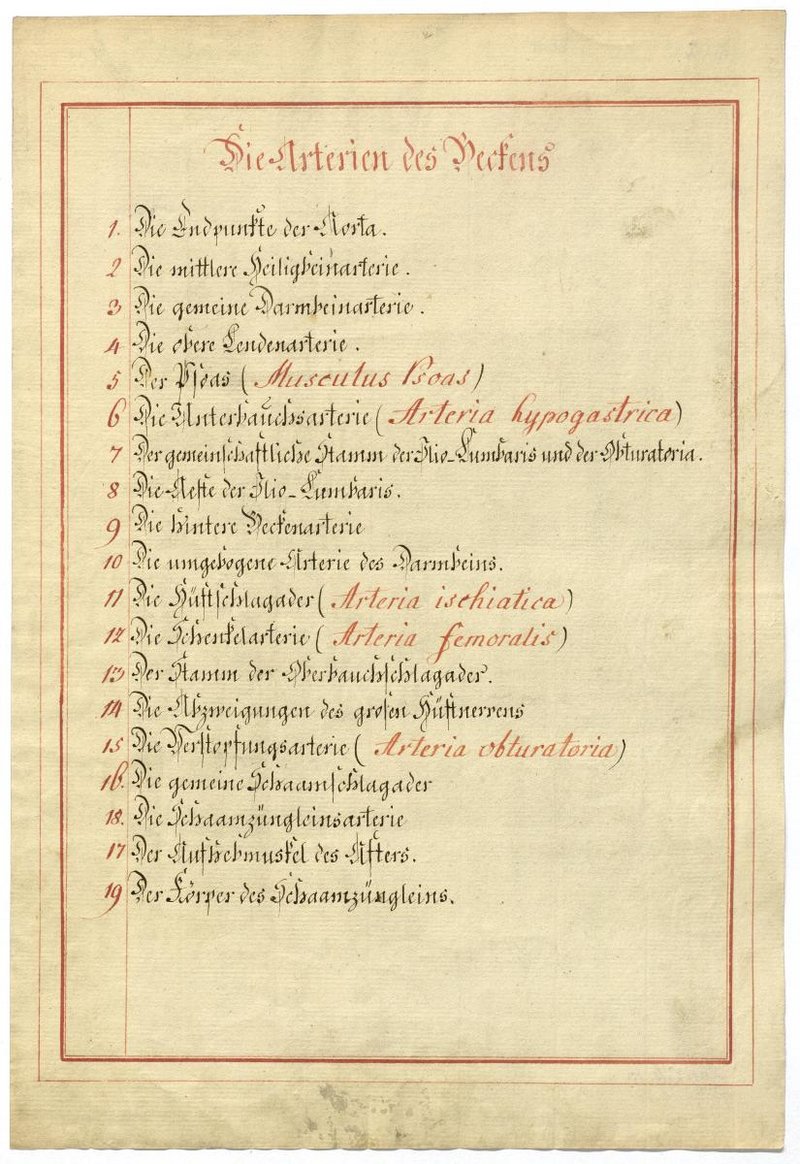 Die Arterien des Beckens
1. Die Endpunkte der Aorta.
2 Die mittlere Heiligbeinarterie.
3 Die gemeine Darmbeinarterie.
4 Die obere Lendenarterie.
5 Der Psoas (Musculus Psoas)
6 Die Unterbauchsarterie (Arteria hypogastrica)
7 Der gemeinschaftliche Stamm der Ilio-Lumbaris und der Obturatoria.
8 Die Aeste der Ilio-Lumbaris.
9 Die hintere Beckenarterie
10 Die umgebogene Arterie des Darmbeins.
11 Die Hüftschlagader (Arteria ischiatica)
12 Die Schenkelarterie (Arteria femoralis)
13 Der Stamm der Oberbauchschlagader.
14 Die Abzweigungen des grosen Hüftnervens
15 Die Verstopfungsarterie (Arteria obturatoria)
16. Die gemeine Schaamschlagader
18. Die Schaamzüngleinsarterie
17 Der Aufhebmuskel des Afters.
19 Der Körper des Schaamzüngleins.